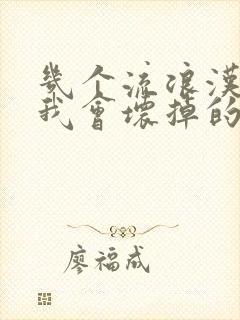 幾个流浪漢
我會壞掉的
廖福成